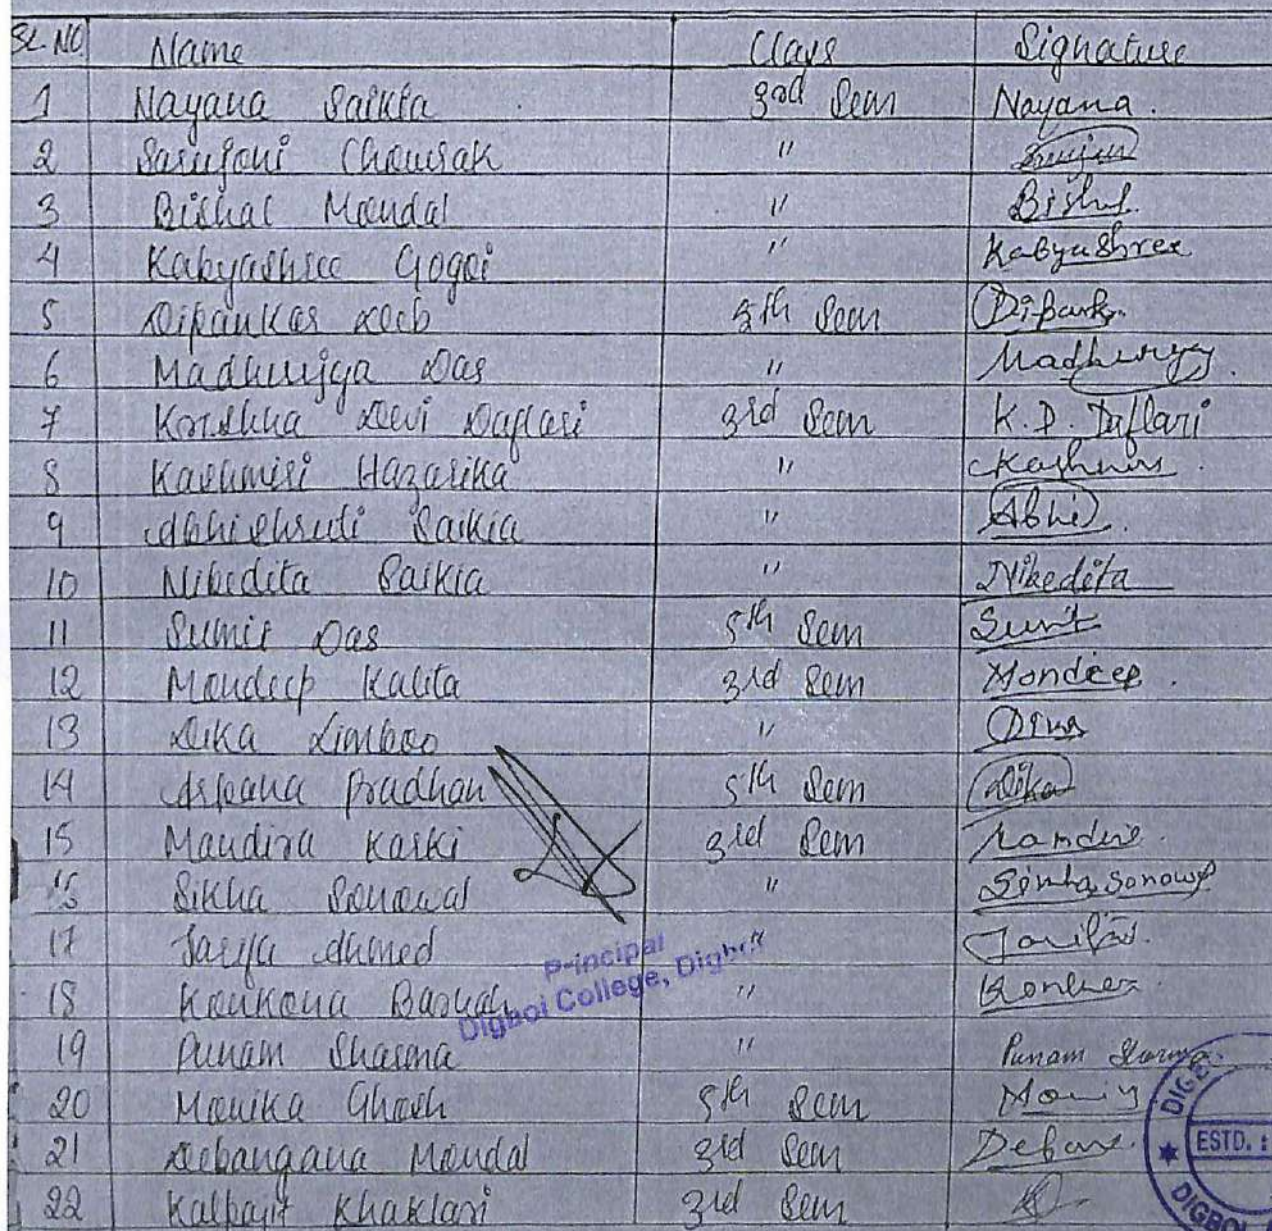 SL.NO. Name Class Signature
1 Nayana Saikia 3rd Sem Nayana.
2 Sarujoni Chowrak "
3 Bishal Mondal " Bishal
4 Kabyashree Gogoi " Kabyashree
5 Dipankar Deb 5th Sem Dipank
6 Madhurjya Das " Madhurjya.
7 Krishna Devi Daflari 3rd Sem K.D. Daflari
8 Kashmiri Hazarika " Kashmiri.
9 Abhishruti Saikia " Abhi.
10 Nibedita Saikia " Nibedita
11 Sumit Das 5th Sem Sumit
12 Mondeep Kalita 3rd Sem Mondeep.
13 Dika Limboo "
14 Arpana Pradhan 5th Sem Dika
15 Mandira Karki 3rd Sem
16 Sikha Sonowal " Sonowal
17 Jarifa Ahmed Jarifa.
Principal
Digboi College, Digboi
18 Konkona Baruah "
19 Punam Sharma " Punam Sharma.
20 Monika Ghosh 5th Sem
21 Debangana Mondal 3rd Sem
22 Kalpajit Khaklari 3rd Sem
DIGBOI
ESTD. :
DIGBO